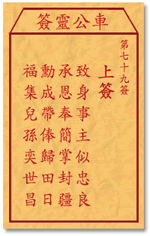 車公靈簽
第七十九簽
上簽
致身事主似忠良
承恩奉簡掌封疆
勳成帶俸歸田日
福集兒孫奕世昌